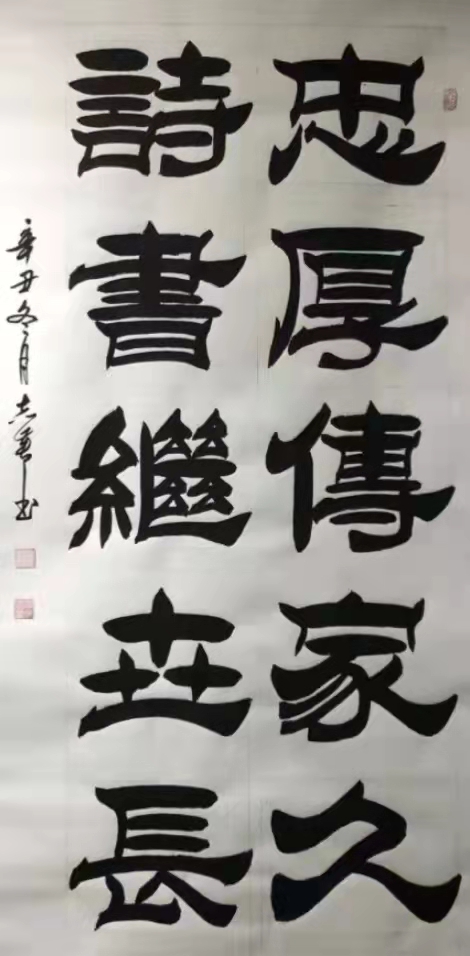 忠厚傳家久
詩書繼世長
辛丑冬月志華书